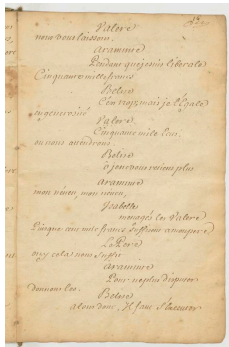 Valere
nous vous laissons.
araminte
Pendant que je suis liberale
Cinquante mille francs
Belise
C'en trop, mais je l'égale
en generosité
Valere.
Cinquante mille
ou nous attendrons
Belise
a jour vous retiens plus
araminte
mon neveu, mon neveu,
Isabelle
menagés les Valere
Puisque cent mile francs suffisent a mon pere
Le Pere
ouy cela nous suffit
araminte
Pour ne plus disputer
donnons les.
Belise
a lun donc, Il faut